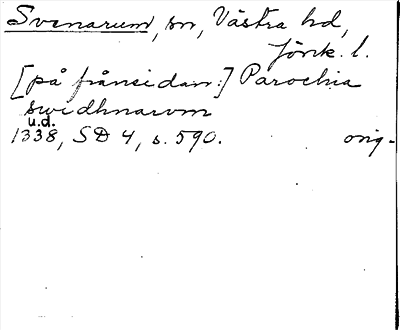 Svenarum, sn, Västra hd,
Jönk. l.
[på frånsidan:] Parochia
swidhnarvm
u.d.
1338, SD 4, s. 590. orig.